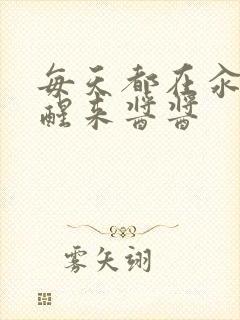 每天都在汆
醒来酱酱
雾矢翊